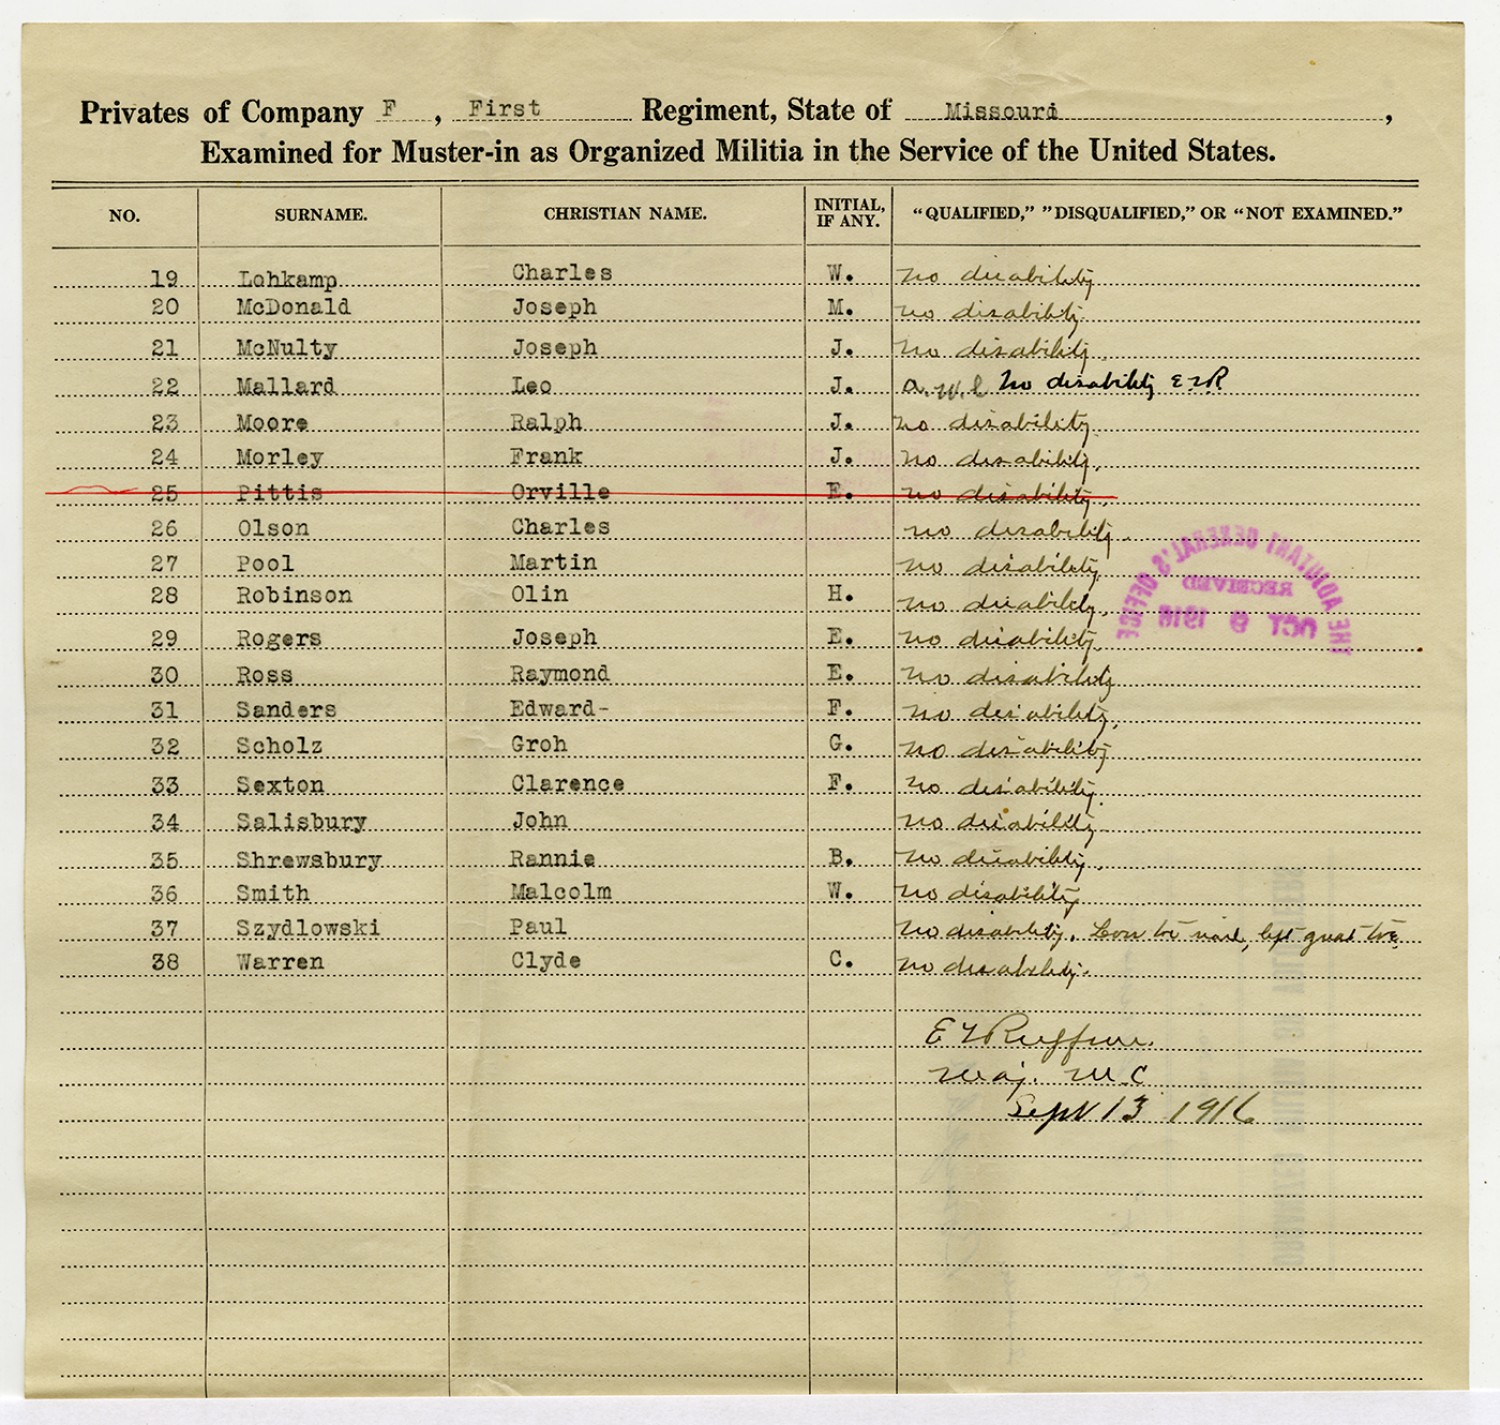 Privates of Company F, First Regiment, State of Missouri,
Examined for Muster-in as Organized Militia in the Service of the United States.
NO. SURNAME. CHRISTIAN NAME. INITIAL, IF ANY. "QUALIFIED," "DISQUALIFIED," OR "NOT EXAMINED."
19 Lohkamp Charles W. no disability
20 McDonald Joseph M. no disability.
21 McNulty Joseph J. no disability.
22 Mallard Leo J. a.w.l no disability E.L.R.
23 Moore Ralph J. no disability.
24 Morley Frank J. no disability.
25 Pittis Orville E. no disability.
26 Olson Charles no disability.
27 Pool Martin no disability
28 Robinson Olin H. no disability.
29 Rogers Joseph E. no disability.
30 Ross Raymond E. no disability
31 Sanders Edward- F. no disability.
32 Scholz Groh G. no disability
33 Sexton Clarence F. no disability.
34 Salisbury John no disability
35 Shrewsbury Rannie B. no disability.
36 Smith Malcolm W. no disability
37 Szydlowski Paul no disability. toe nail, left great toe
38 Warren Clyde C. no disability.
THE ADJUTANT GENERAL'S OFFICE
RECEIVED
OCT 9 1916
E L Ruffner.
Maj. M C
Sept 13 1916